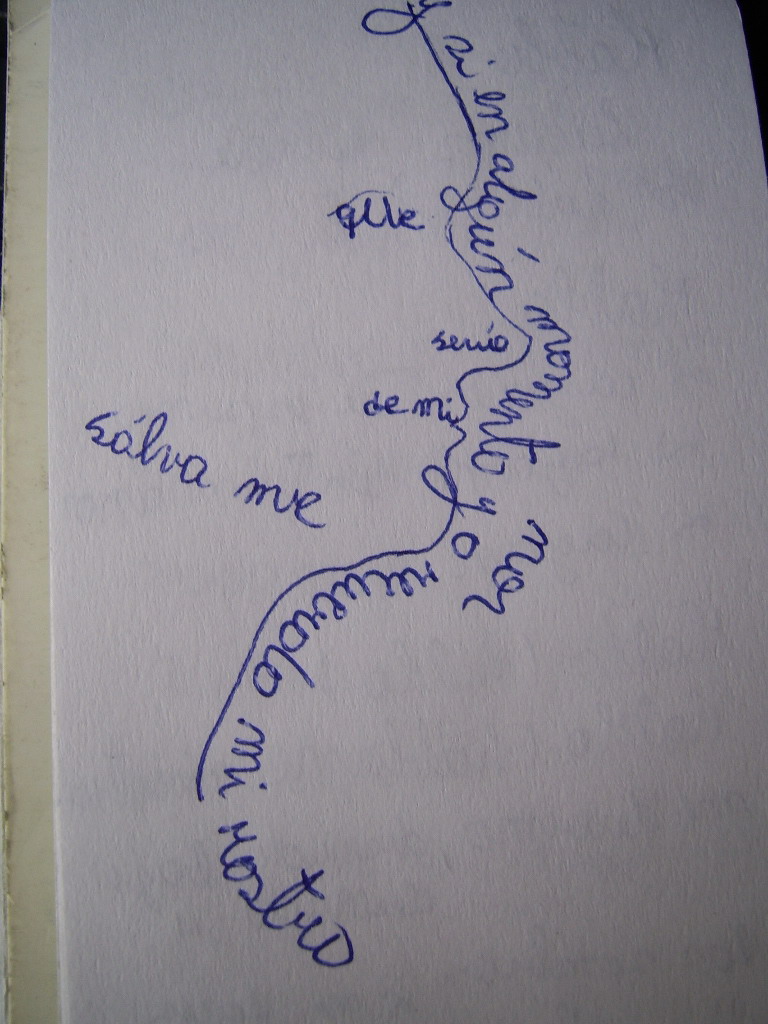 y si en algún momento yo no
recuerdo mi rostro
que
sería
de mi
sálva me